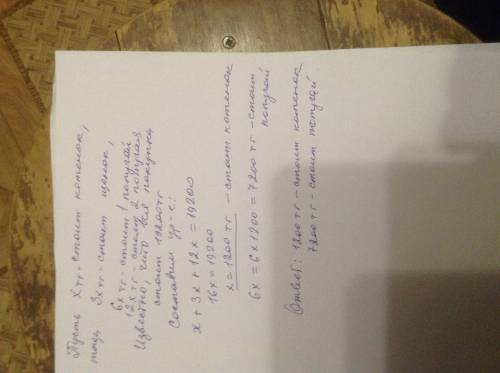 Пусть x тг - стоит котенок,
тогда 3x тг - стоит щенок,
6x тг - стоит 1 попугай
12x тг - стоят 2 попугая
Известно, что вся покупка
стоит 19200 тг
Составим ур-е:
x + 3x + 12x = 19200
16x = 19200
x = 1200 тг - стоит котенок
6x = 6 x 1200 = 7200 тг - стоит
попугай
Ответ: 1200 тг - стоит котенок
7200 тг - стоит попугай